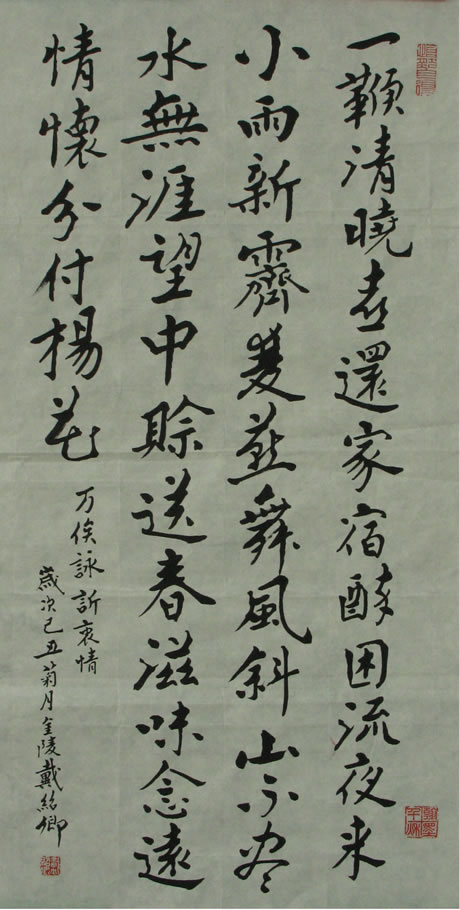 一鞭清曉喜還家宿酔困流夜来
小雨新霽雙燕舞風斜山不尽
水無涯望中賒送春滋味念遠
情懷分付楊花
万俟詠訴衷情
歲次己丑菊月金陵戴紹卿